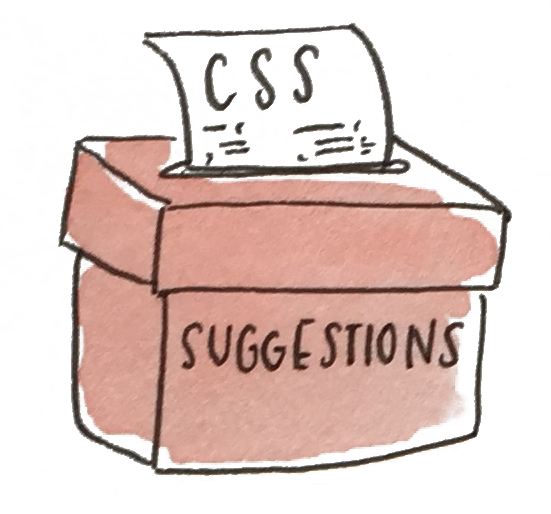 CSS
SUGGESTIONS